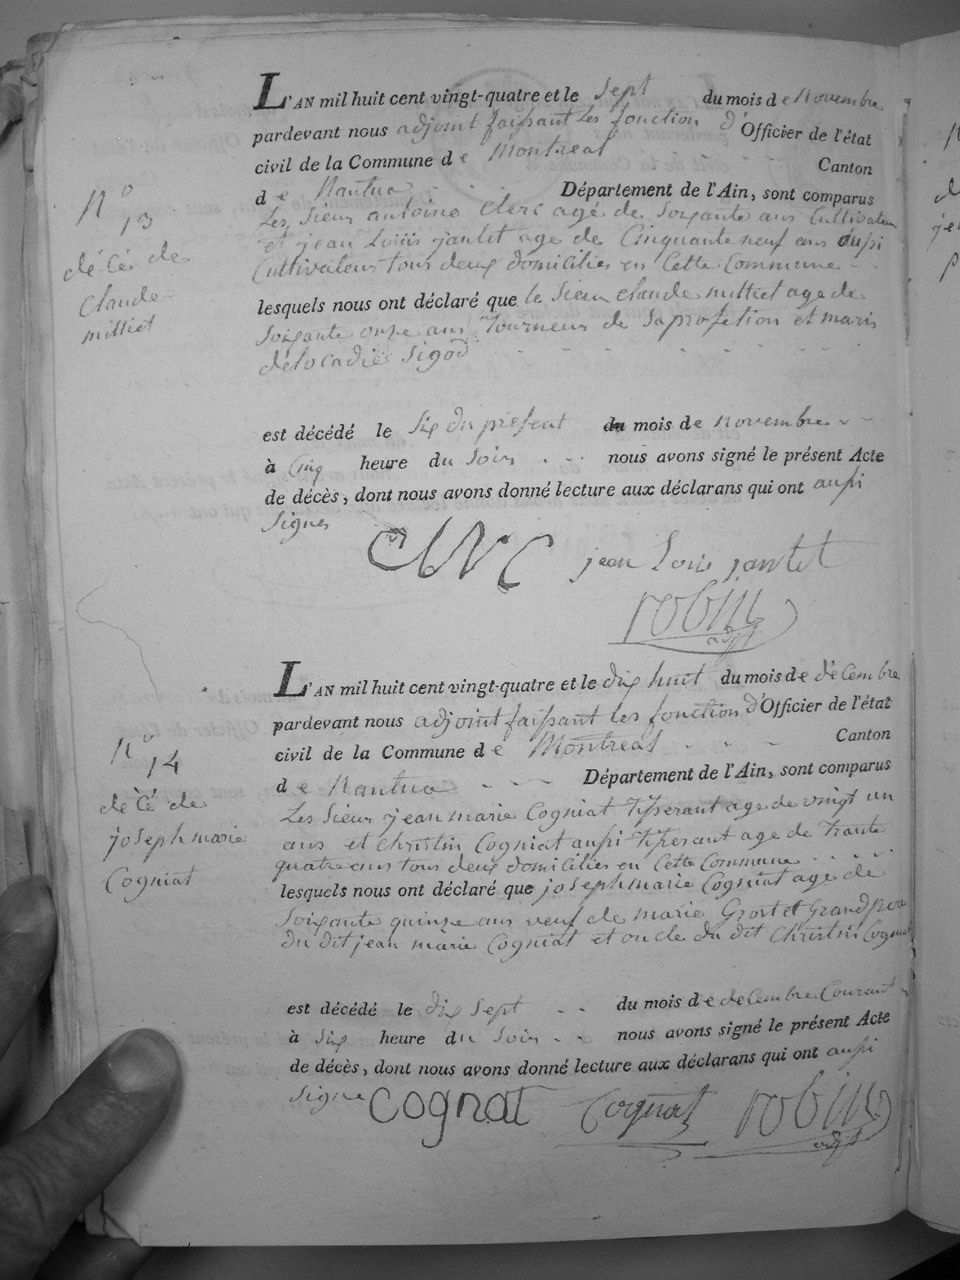 L'AN mil huit cent vingt-quatre et le sept du mois de Novembre
pardevant nous adjoint faissant les fonction d'Officier de l'état
civil de la Commune de Montreal Canton
de Nantua Département de l'Ain, sont comparus
N° 13
décés de
Claude
milliet
Les Sieur antoine Clerc agé de Soixante ans Cultivateur
et jean Louis jantet age de Cinquante neuf ans aussi
Cultivateur tous deux domiciliés en Cette Commune
lesquels nous ont déclaré que le Sieur claude milliet age de
Soixante onze ans Tourneur de Saprofetion et maris
délocadie Sigod
est décédé le Six du présent du mois de novembre
à Cinq heure du Soir nous avons signé le présent Acte
de décès, dont nous avons donné lecture aux déclarans qui ont aussi
Signes
Clerc jean Louis jantet
robin
adjt
L'AN mil huit cent vingt-quatre et le dix huit du mois de décembre
pardevant nous adjoint faissant les fonction d'Officier de l'état
civil de la Commune de Montreal Canton
de Nantua Département de l'Ain, sont comparus
N° 14
décé de
joseph marie
Cogniat
Les Sieur jean marie Cogniat Tisserant age de vingt un
ans et Christin Cogniat aussi Tisserant age de Trante
quatre ans tous deux domiciliés en Cette Commune
lesquels nous ont déclaré que joseph marie Cogniat age de
Soixante quinze ans veuf de marie et Grand pere
du dit jean marie Cogniat et oncle du dit Christin Cogniat
est décédé le dix Sept du mois de decembre Courant
à Six heure du Soir nous avons signé le présent Acte
de décès, dont nous avons donné lecture aux déclarans qui ont aussi
Signe Cognat Cognat robin
adjt